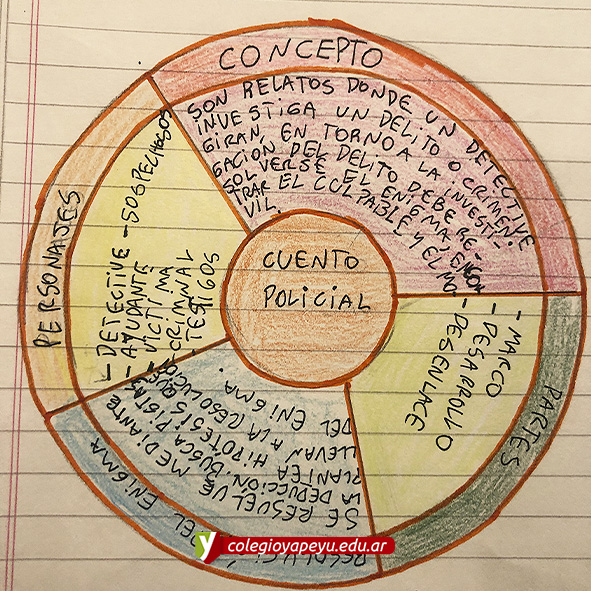 CONCEPTO
SON RELATOS DONDE UN DETECTIVE
INVESTIGA UN DELITO O CRIMEN
GIRAN EN TORNO A LA INVESTI-
GACION DEL DELITO DEBE RE-
SOLVERSE EL ENIGMA, ENCON
TRAR EL CULPABLE Y EL MO-
VIL.
CUENTO
POLICIAL
PERSONAJES
- DETECTIVE - SOSPECHOSOS
- AYUDANTE
- VICTIMA
- CRIMINAL
- TESTIGOS
PARTES
- MARCO
- DESARROLLO
- DESENLACE
DEL ENIGMA
SE RESUELVE MEDIANTE
LA DEDUCCIÓN, BUSCA PISTAS
PLANTEA HIPOTESIS QUE
LLEVAN A LA RESOLUCIÓN
DEL ENIGMA.
colegioyapeyu.edu.ar